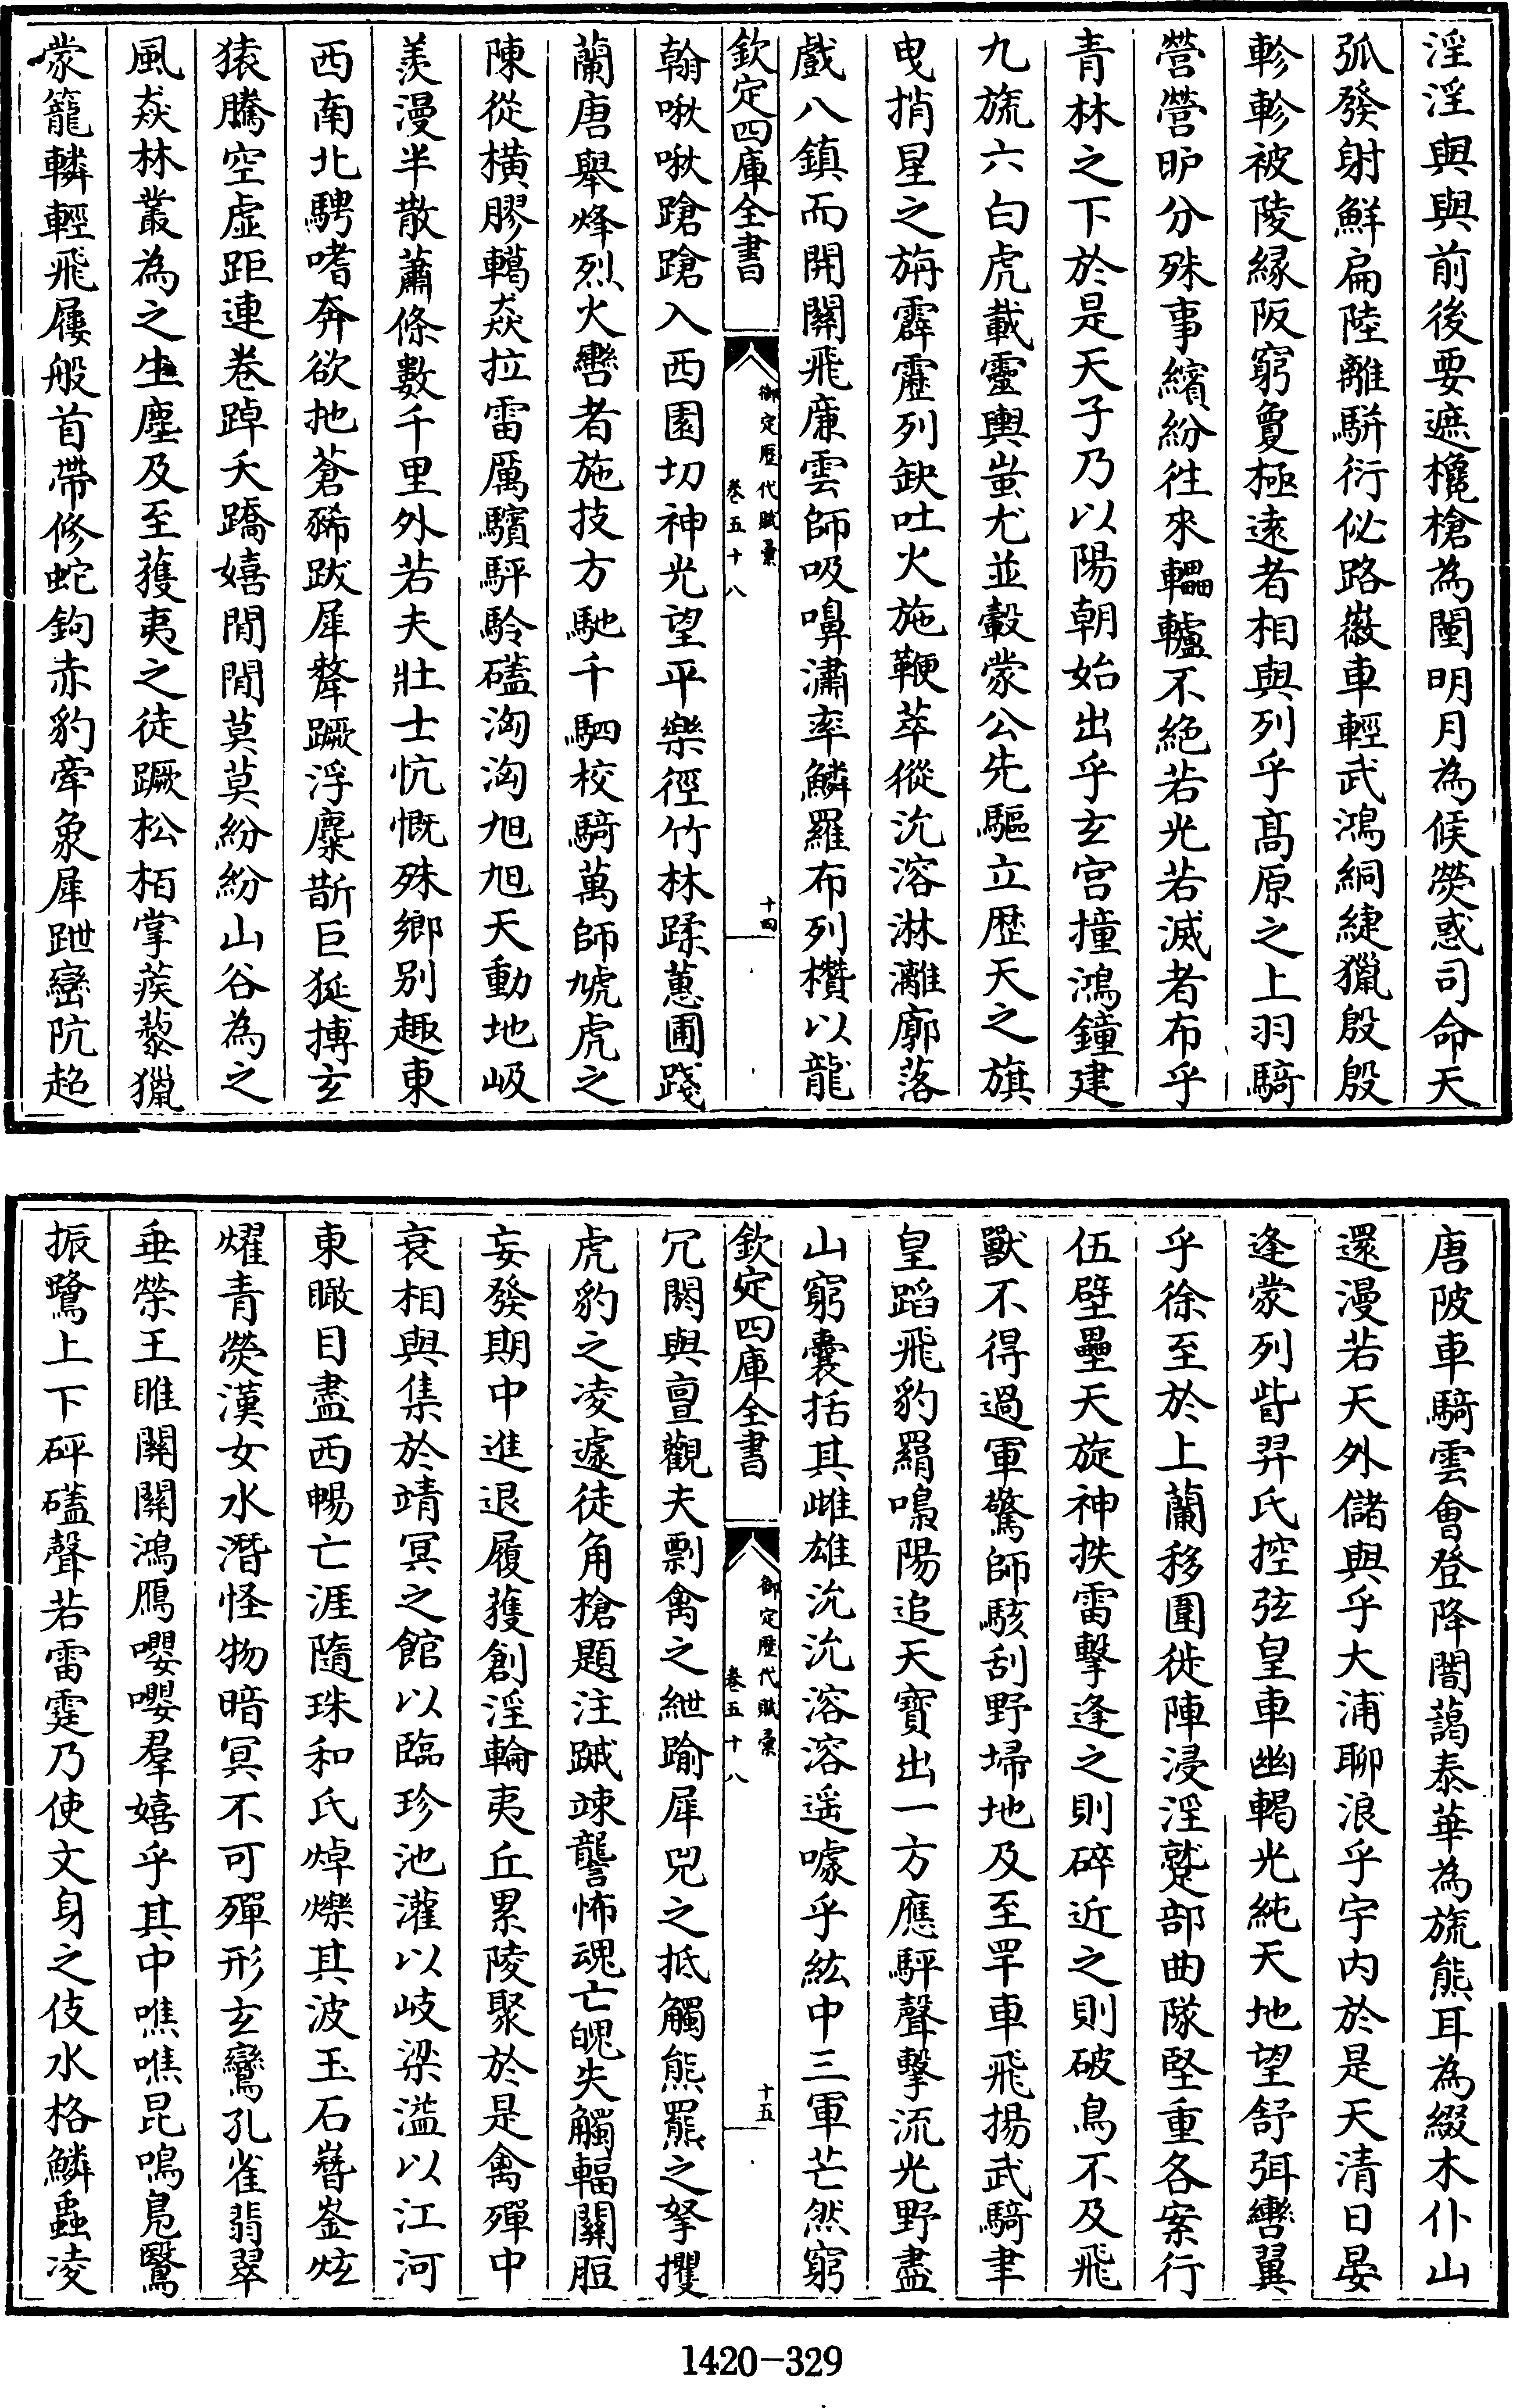 淫淫與與前後要遮欃槍為闉明月為候熒惑司命天
弧發射鮮扁陸離駢衍佖路徽車輕武鴻絧緁獵殷殷
軫軫被陵緣阪窮夐極遠者相與列乎高原之上羽騎
營營昈分殊事繽紛往來轠轤不絕若光若滅者布乎
青林之下於是天子乃以陽朝始出乎玄宮撞鴻鐘建
九旒六白虎載靈輿蚩尤並轂蒙公先驅立歴天之旗
曳捎星之旃霹靂列缺吐火施鞭萃傱沇溶淋離廓落
戲八鎮而開關飛廉雲師吸嚊潚率鱗羅布列欑以龍
欽定四庫全書
御定歴代賦彙
卷五十八
十四
翰啾啾蹌蹌入西園切神光望平樂徑竹林蹂蕙圃踐
蘭唐舉烽烈火轡者施技方馳千駟校騎萬師虓虎之
陳從橫膠轕猋拉雷厲驞駍駖礚洶洶旭旭天動地岋
羨漫半散蕭條數千里外若夫壯士忼慨殊鄉别趣東
西南北騁嗜奔欲拖蒼豨跋犀犛蹶浮麋斮巨狿搏玄
猿騰空虛距連卷踔夭蹻嬉閒閒莫莫紛紛山谷為之
風猋林叢為之生塵及至獲夷之徒蹶松栢掌蒺藜獵
蒙籠轔輕飛屨般首帶修蛇鉤赤豹牽象犀跇巒阬超
唐陂車騎雲會登降闇藹泰華為旒熊耳為綴木仆山
還漫若天外儲與乎大浦聊浪乎宇内於是天清日晏
逢蒙列眥羿氏控弦皇車幽輵光純天地望舒弭轡翼
乎徐至於上蘭移圍徙陣浸淫蹵部曲隊堅重各案行
伍壁壘天旋神抶雷擊逢之則碎近之則破鳥不及飛
獸不得過軍驚師駭刮野埽地及至罕車飛揚武騎聿
皇蹈飛豹羂嘄陽追天寶出一方應駍聲擊流光野盡
山窮囊括其雌雄沇沇溶溶遥噱乎紘中三軍芒然窮
欽定四庫全書
御定歴代賦彙
卷五十八
十五
冗閼與亶觀夫剽禽之紲踰犀兕之抵觸熊羆之挐攫
虎豹之凌遽徒角槍題注蹙竦讋怖魂亡魄失觸輻關脰
妄發期中進退履獲創淫輪夷丘累陵聚於是禽殫中
衰相與集於靖冥之館以臨珍池灌以岐梁溢以江河
東瞰目盡西暢亡涯隨珠和氏焯爍其波玉石嶜崟炫
燿青熒漢女水潛怪物暗冥不可殫形玄鸞孔雀翡翠
垂榮王雎關關鴻鴈嚶嚶羣嬉乎其中噍噍昆鳴鳧鷖
振鷺上下砰礚聲若雷霆乃使文身之伎水格鱗蟲凌
1420-329